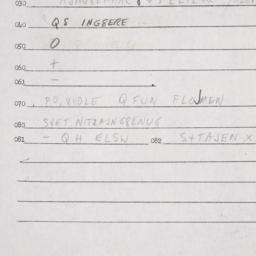 030
040 QS INGBERE
050 O
060 +
061 -
070 PO, VIDLE QFUN FLOMEN
080 SVET NITZAINGBENUG
081 - QH ELSW 082 S+TAJEN X